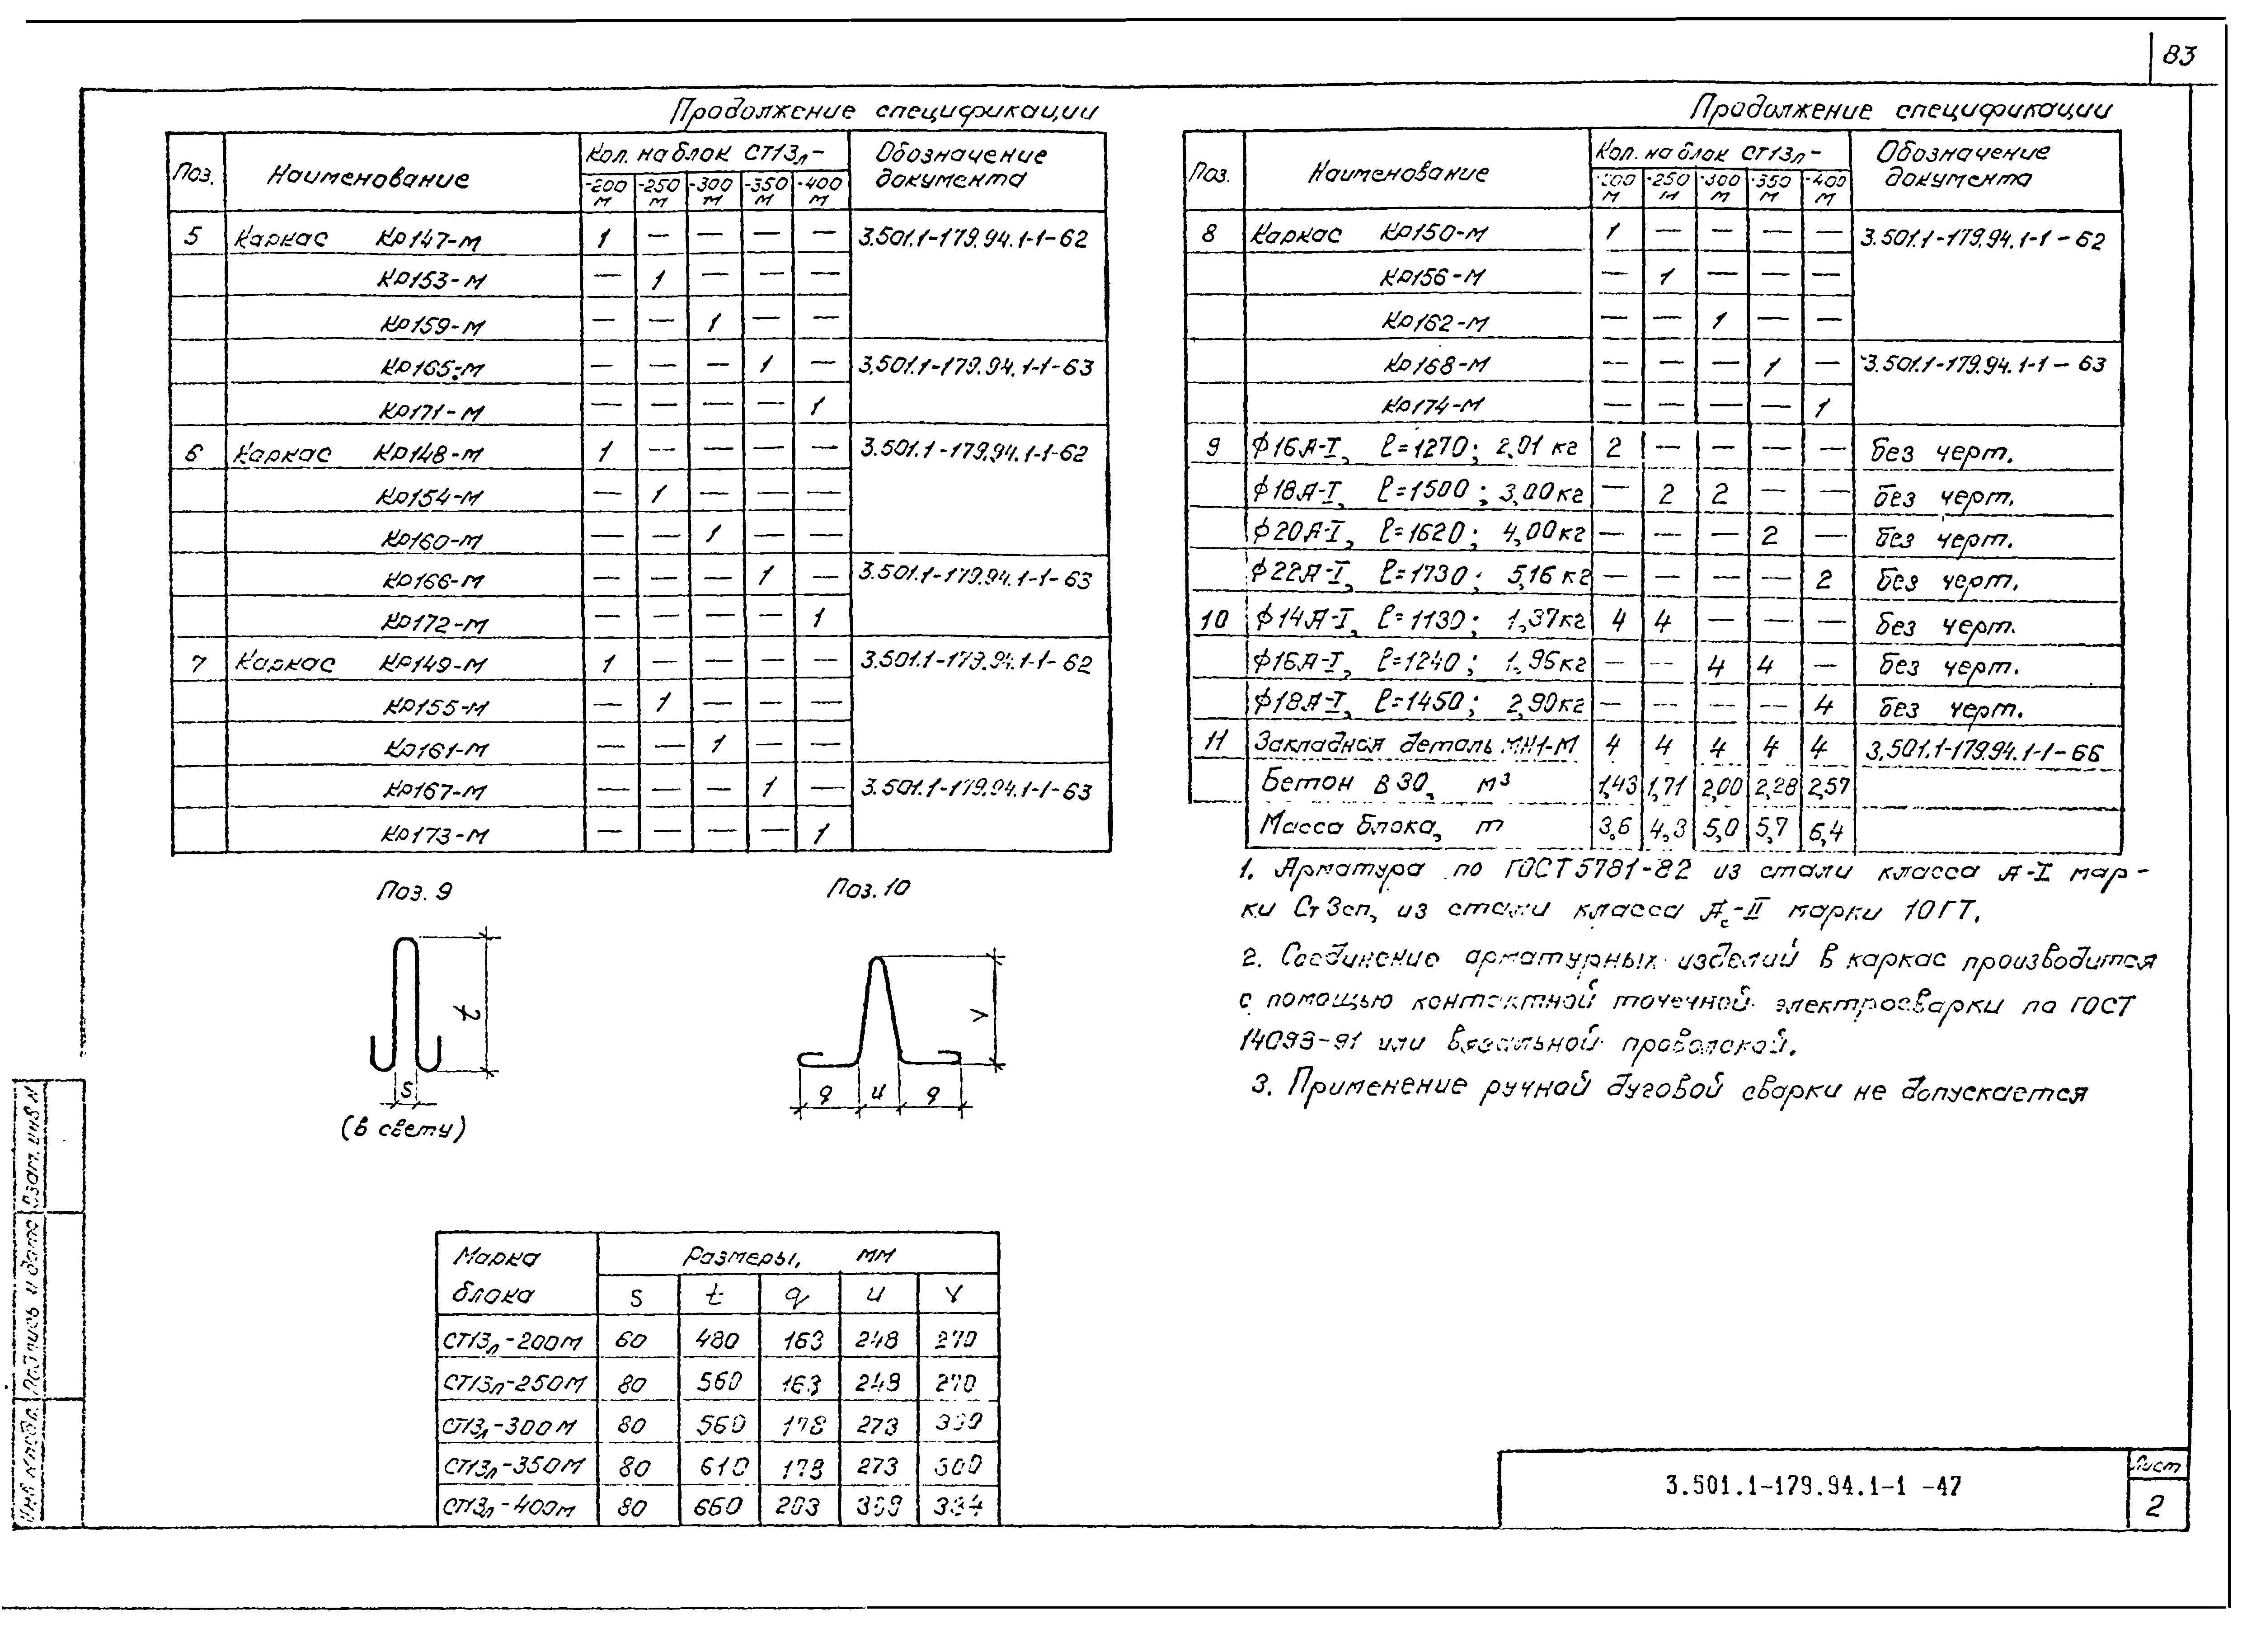 83
Продолжение спецификации
Поз. Наименование Кол. на блок СТ13л- Обозначение документа
-200 М -250 М -300 М -350 М -400 М
5 Каркас КР147-М 1 — — — — 3.501.1-179.94.1-1-62
КР153-М — 1 — — —
КР159-М — — 1 — —
КР165-М — — — 1 — 3.501.1-179.94.1-1-63
КР171-М — — — — 1
6 Каркас КР148-М 1 — — — — 3.501.1-179.94.1-1-62
КР154-М — 1 — — —
КР160-М — — 1 — —
КР166-М — — — 1 — 3.501.1-179.94.1-1-63
КР172-М — — — — 1
7 Каркас КР149-М 1 — — — — 3.501.1-179.94.1-1-62
КР155-М — 1 — — —
КР161-М — — 1 — —
КР167-М — — — 1 — 3.501.1-179.94.1-1-63
КР173-М — — — — 1
Продолжение спецификации
Поз. Наименование Кол. на блок СТ13л- Обозначение документа
-200 М -250 М -300 М -350 М -400 М
8 Каркас КР150-М 1 — — — — 3.501.1-179.94.1-1-62
КР156-М — 1 — — —
КР162-М — — 1 — —
КР168-М — — — 1 — 3.501.1-179.94.1-1-63
КР174-М — — — — 1
9 ϕ16А-I, ℓ=1270; 2,01 кг 2 — — — — без черт.
ϕ18А-I, ℓ=1500; 3,00 кг — 2 2 — — без черт.
ϕ20А-I, ℓ=1620; 4,00 кг — — — 2 — без черт.
ϕ22А-I, ℓ=1730; 5,16 кг — — — — 2 без черт.
10 ϕ14А-I, ℓ=1130; 1,37 кг 4 4 — — — без черт.
ϕ16А-I, ℓ=1240; 1,96 кг — — 4 4 — без черт.
ϕ18А-I, ℓ=1450; 2,90 кг — — — — 4 без черт.
11 Закладная деталь МН1-М 4 4 4 4 4 3.501.1-179.94.1-1-66
Бетон В30, м³ 1,43 1,71 2,00 2,28 2,57
Масса блока, т 3,6 4,3 5,0 5,7 6,4
1. Арматура по ГОСТ 5781-82 из стали класса А-I мар-
ки Ст3сп, из стали класса Ас-II марки 10ГТ.
2. Соединение арматурных изделий в каркас производится
с помощью контактной точечной электросварки по ГОСТ
14098-91 или вязальной проволокой.
3. Применение ручной дуговой сварки не допускается
Поз. 9
t
S
(в свету)
Поз. 10
v
q u q
Марка блока Размеры, мм
S t q u v
СТ13л-200М 60 480 163 248 270
СТ13л-250М 80 560 163 248 270
СТ13л-300М 80 560 178 273 300
СТ13л-350М 80 610 178 273 300
СТ13л-400М 80 660 203 309 334
3.501.1-179.94.1-1 -47
Лист
2
Взам. инв N
Подпись и дата
Инв N подл.